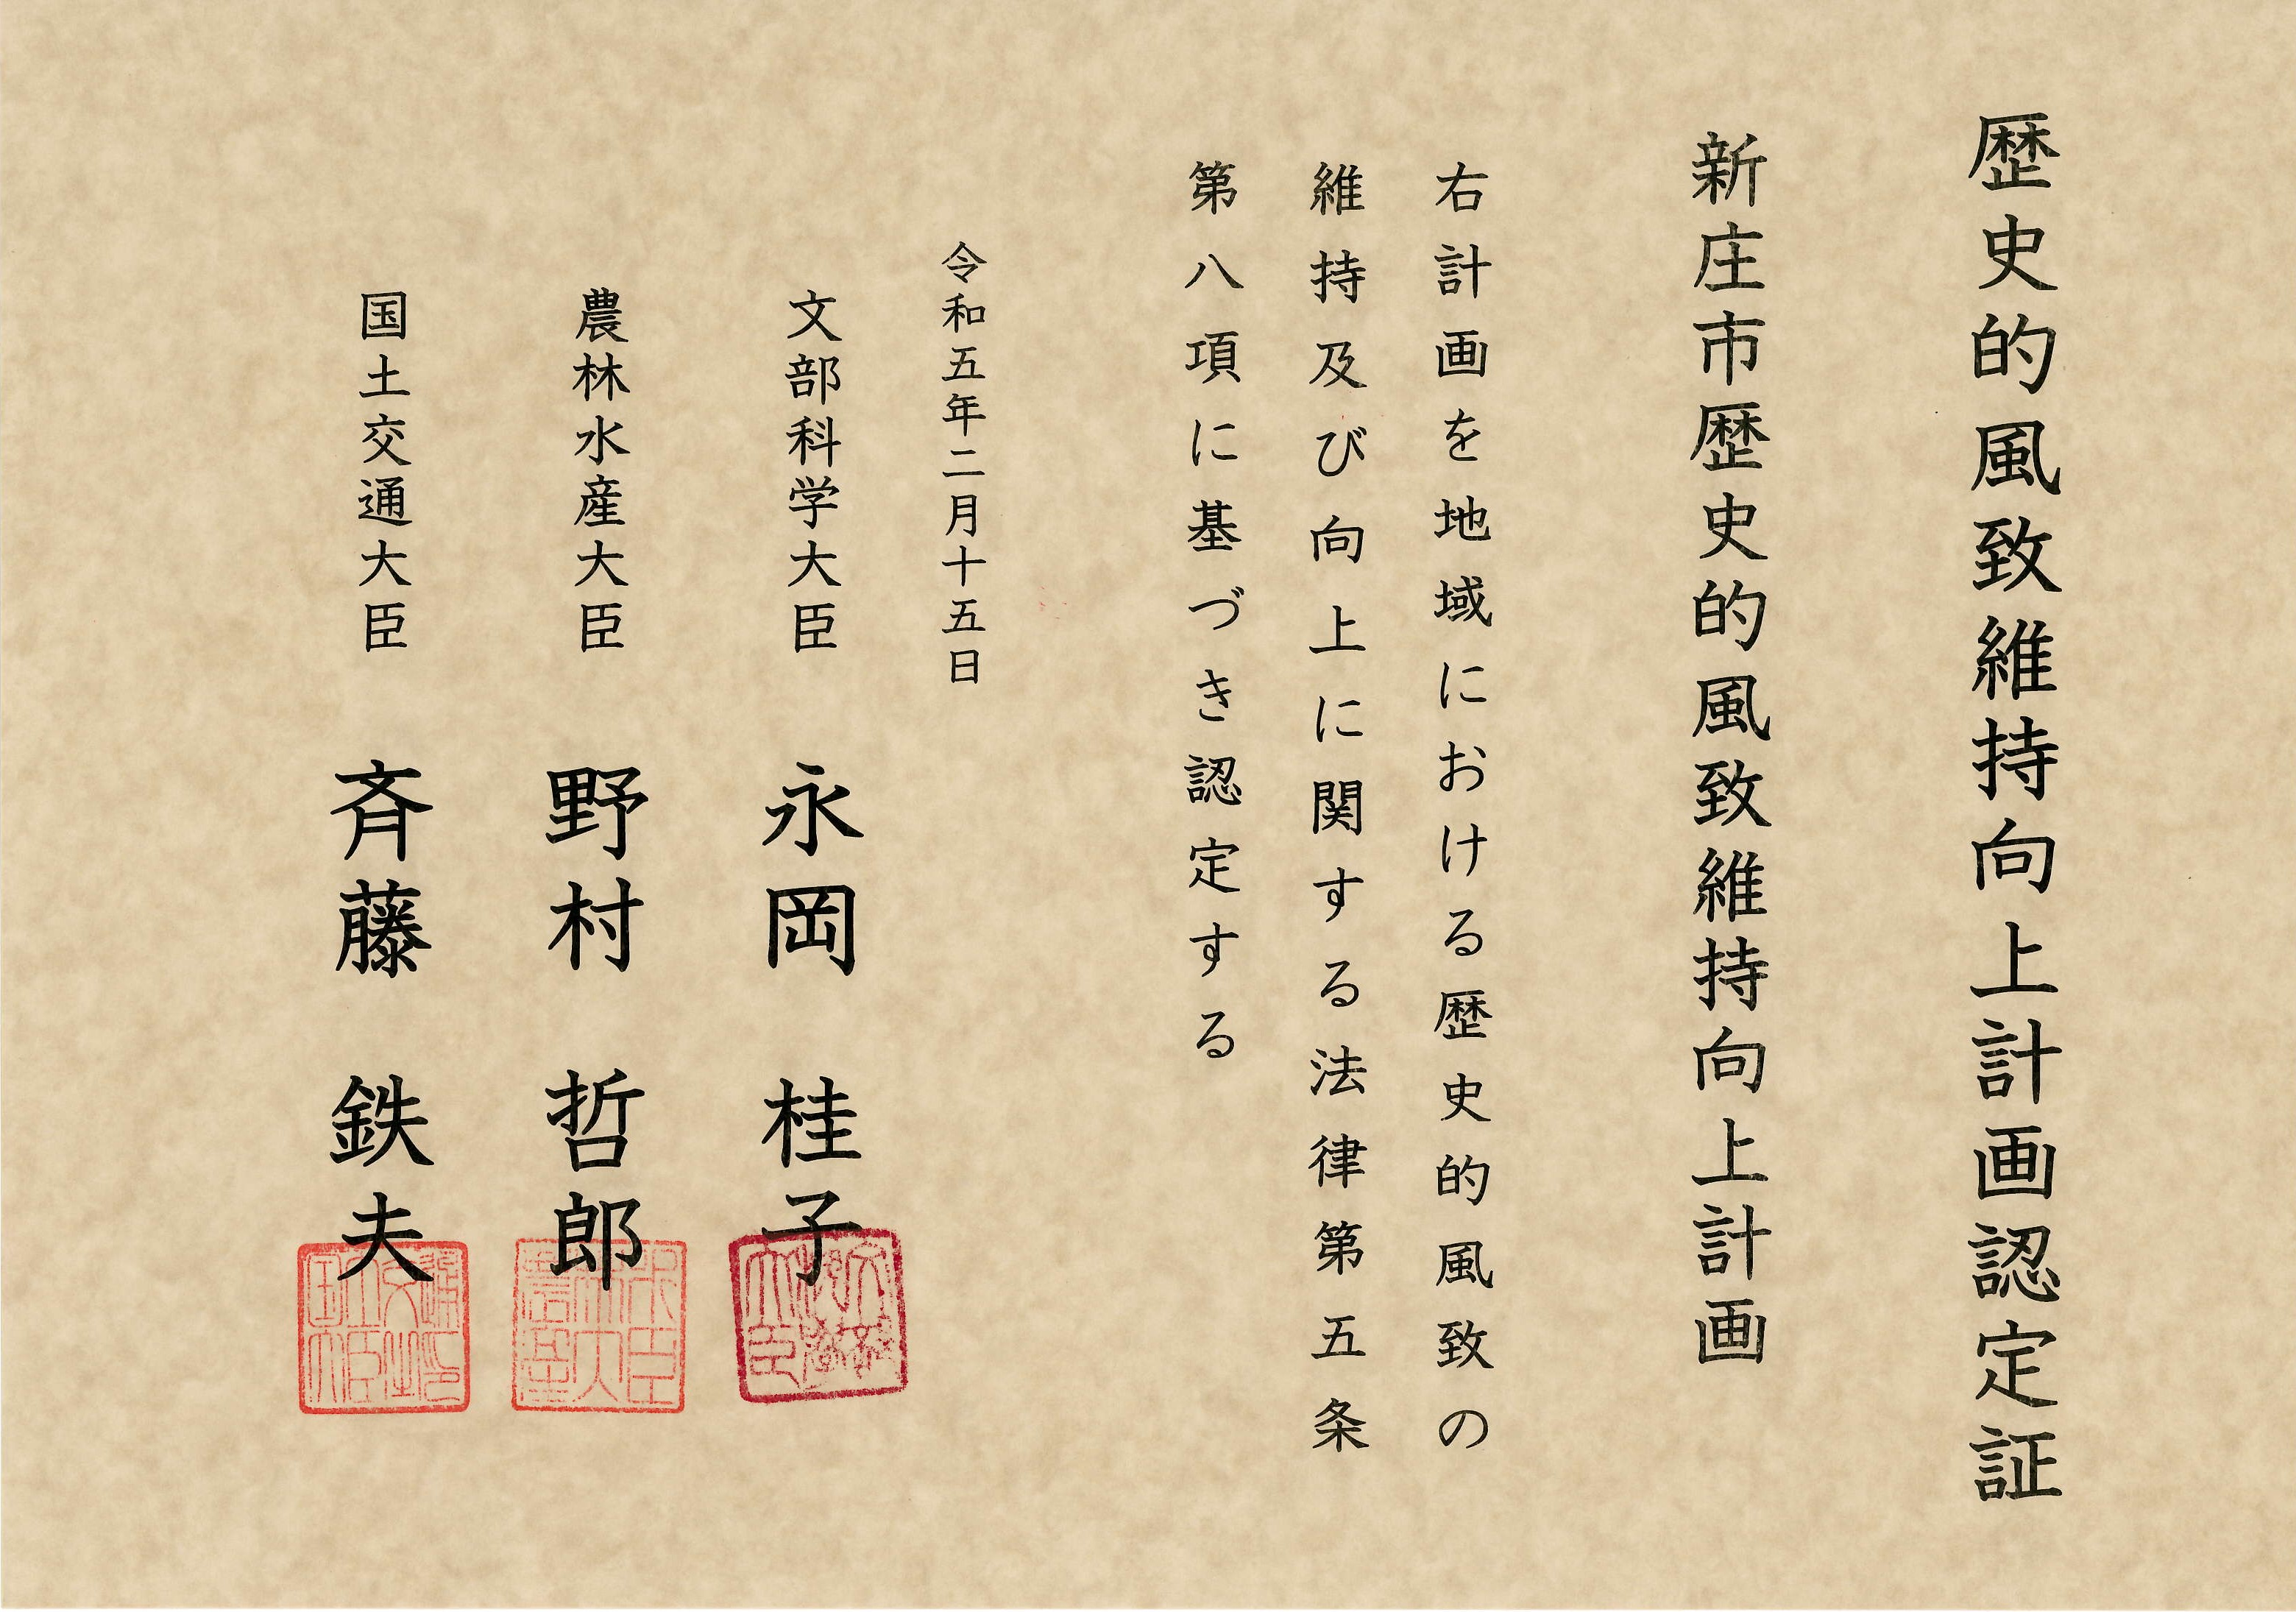 歴史的風致維持向上計画認定証
新庄市歴史的風致維持向上計画
右計画を地域における歴史的風致の
維持及び向上に関する法律第五条
第八項に基づき認定する
令和五年二月十五日
文部科学大臣 永岡 桂子
農林水産大臣 野村 哲郎
国土交通大臣 斉藤 鉄夫